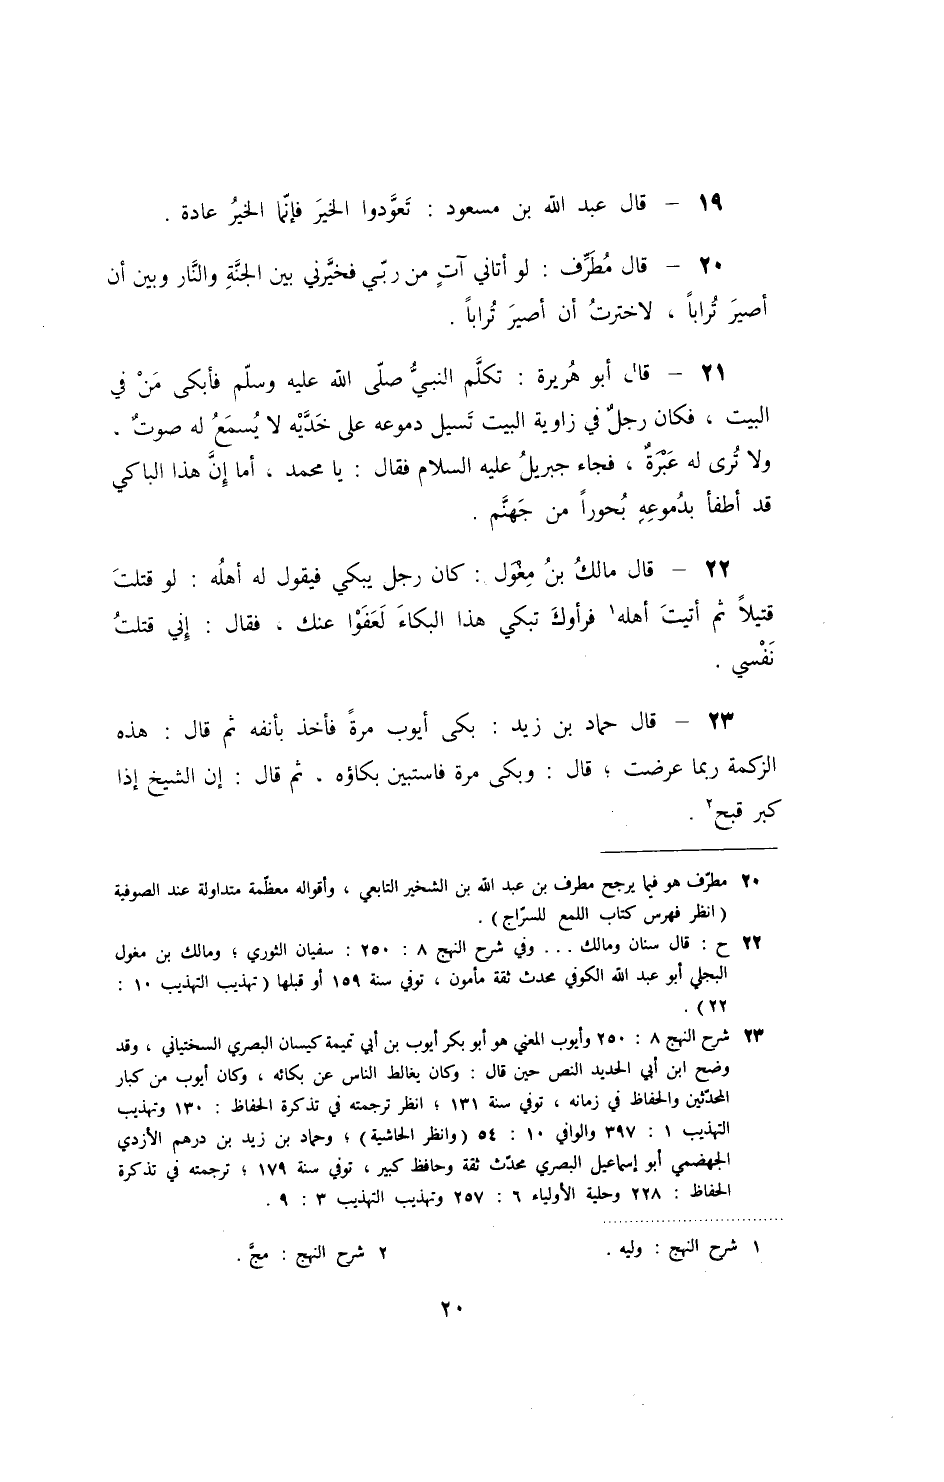 ١٩ – قال عبد الله بن مسعود : تَعوَّدوا الخيرَ فإنّما الخيرُ عادة .
٢٠ – قال مُطَرِّف : لو أتاني آتٍ من ربّي فخيَّرني بين الجنَّةِ والنَّار وبين أن
أصيرَ تُراباً ، لاخترتُ أن أصيرَ تُراباً .
٢١ – قال أبو هُريرة : تكلَّم النبيُّ صلّى الله عليه وسلّم فأبكى مَنْ في
البيت ، فكان رجلٌ في زاوية البيت تَسيل دموعه على خَدَّيْه لا يُسمَعُ له صوتٌ .
ولا تُرى له عَبْرَةٌ ، فجاء جبريلُ عليه السلام فقال : يا محمد ، أما إنَّ هذا الباكي
قد أطفأ بدُموعِهِ بُحوراً من جَهنَّم .
٢٢ – قال مالكُ بنُ مِغْوَل : كان رجل يبكي فيقول له أهلُه : لو قتلتَ
قتيلاً ثم أتيتَ أهله١ فرأوكَ تبكي هذا البكاءَ لَعَفَوْا عنك ، فقال : إني قتلتُ
نَفْسي .
٢٣ – قال حماد بن زيد : بكى أيوب مرةً فأخذ بأنفه ثم قال : هذه
الزكمة ربما عرضت ؛ قال : وبكى مرة فاستبين بكاؤه . ثم قال : إن الشيخ إذا
كبر قبح٢ .
٢٠ مطرّف هو فيما يرجح مطرف بن عبد الله بن الشخير التابعي ، وأقواله معظّمة متداولة عند الصوفية
( انظر فهرس كتاب اللمع للسرّاج ) .
٢٢ ح : قال سنان ومالك ... وفي شرح النهج ٨ : ٢٥٠ : سفيان الثوري ؛ ومالك بن مغول
البجلي أبو عبد الله الكوفي محدث ثقة مأمون ، توفي سنة ١٥٩ أو قبلها ( تهذيب التهذيب ١٠ :
٢٢ ) .
٢٣ شرح النهج ٨ : ٢٥٠ وأيوب المعني هو أبو بكر أيوب بن أبي تميمة كيسان البصري السختياني ، وقد
وضح ابن أبي الحديد النص حين قال : وكان يغالط الناس عن بكائه ، وكان أيوب من كبار
المحدّثين والحفاظ في زمانه ، توفي سنة ١٣١ ؛ انظر ترجمته في تذكرة الحفاظ : ١٣٠ وتهذيب
التهذيب ١ : ٣٩٧ والوافي ١٠ : ٥٤ ( وانظر الحاشية ) ؛ وحماد بن زيد بن درهم الأزدي
الجهضمي أبو إسماعيل البصري محدّث ثقة وحافظ كبير ، توفي سنة ١٧٩ ؛ ترجمته في تذكرة
الحفاظ : ٢٢٨ وحلية الأولياء ٦ : ٢٥٧ وتهذيب التهذيب ٣ : ٩ .
١ شرح النهج : وليه . ٢ شرح النهج : مجَّ .
٢٠